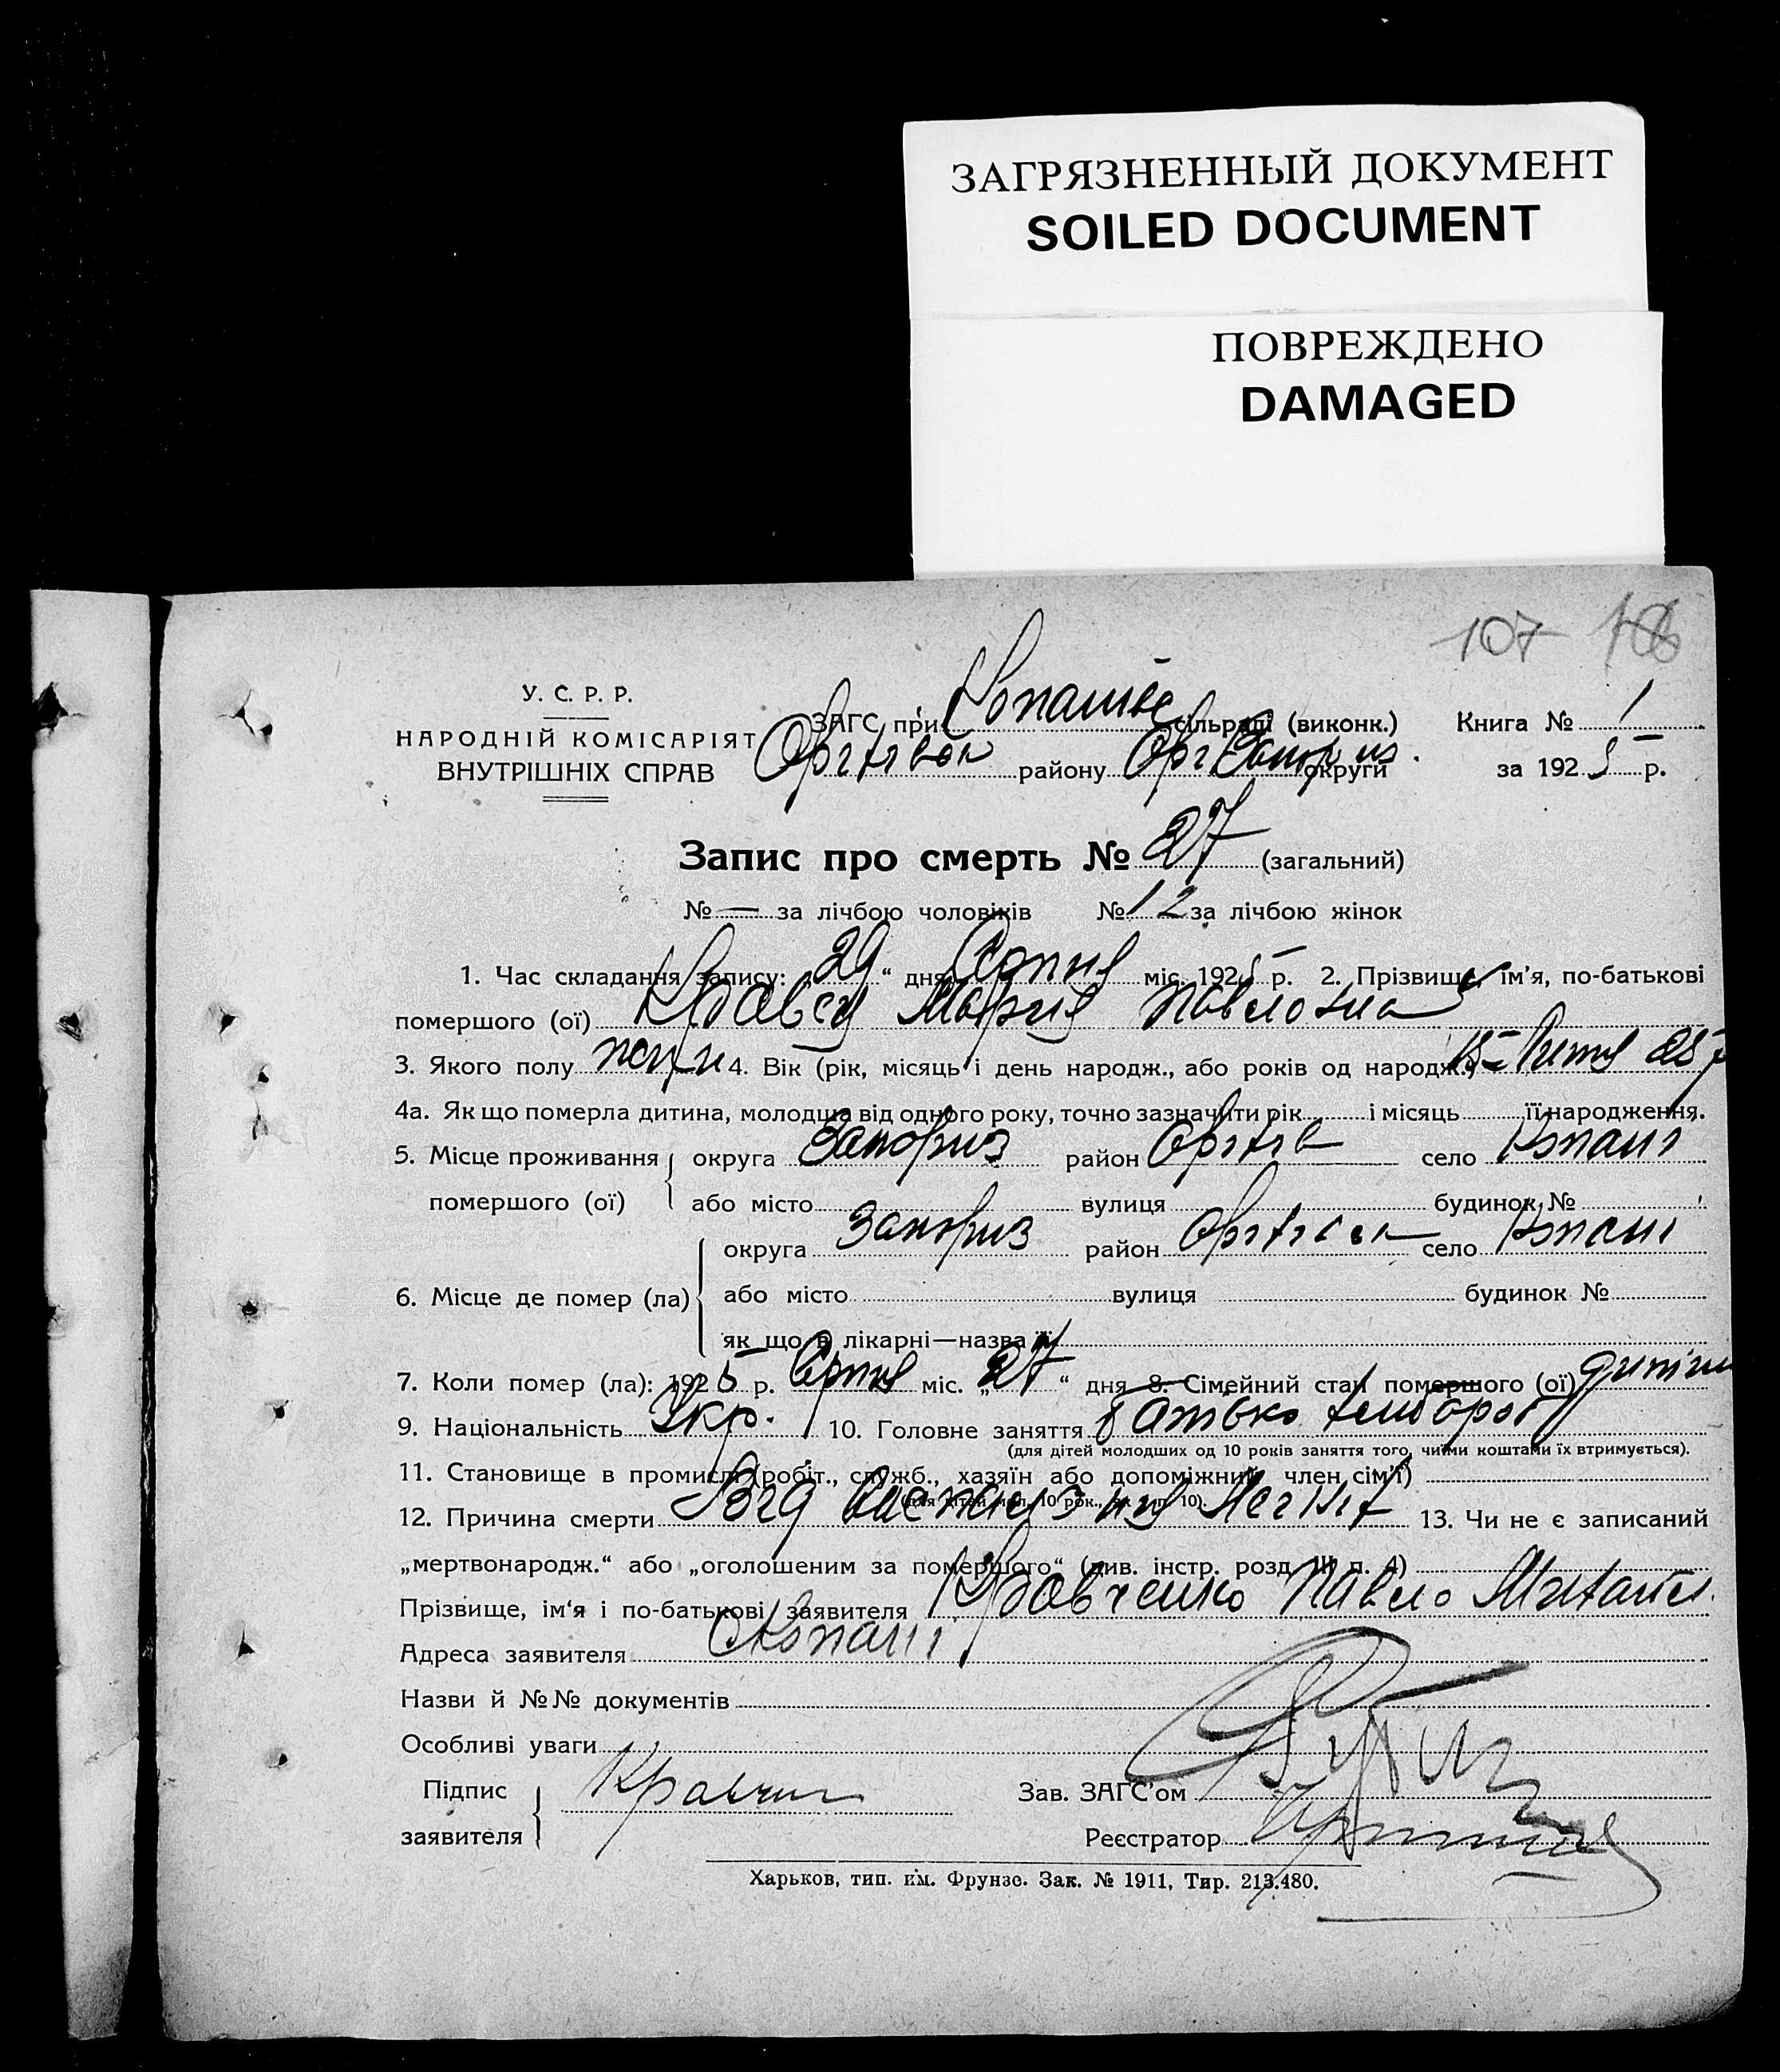 ЗАГРЯЗНЕННЫЙ ДОКУМЕНТ
SOILED DOCUMENT
ПОВРЕЖДЕНО
DAMAGED
107
У. С. Р. Р.
НАРОДНІЙ КОМІСАРІЯТ
ВНУТРІШНІХ СПРАВ
ЗАГС при сільраді (виконк.) Книга № 1
району округи за 1925 р.
Запис про смерть № 27 (загальний)
№ — за лічбою чоловіків № 12 за лічбою жінок
1. Час складання запису: 29 “ дня Серпня міс. 1925 р. 2. Прізвище, ім'я, по-батькові
помершого (ої) Мария Павловна
3. Якого полу 4. Вік (рік, місяць і день народж., або років од народж.) 25 р
4а. Як що померла дитина, молодша від одного року, точно зазначити рік і місяць її народження.
5. Місце проживання округа Запориз район село Копані
помершого (ої) або місто вулиця будинок №
округа Запориз район село Копані
6. Місце де помер (ла) або місто вулиця будинок №
як що в лікарні—назва її
7. Коли помер (ла): 1925 р. Серпня міс. „27“ дня 8. Сімейний стан помершого (ої) дитина
9. Національність Укр. 10. Головне заняття батько хлибороб
(для дітей молодших од 10 років заняття того, чиїми коштами їх втримується).
11. Становище в промислі (робіт., служб., хазяїн або допоміжний член сім'ї)
(для дітей мол. 10 рок., як в п. 10).
12. Причина смерти Легких 13. Чи не є записаний
„мертвонародж.“ або „оголошеним за помершого“ (див. інстр. розд. III п. 4)
Прізвище, ім'я і по-батькові заявителя Кравченко Павло Михайл.
Адреса заявителя Копані
Назви й №№ документів
Особливі уваги
Підпис
заявителя
Зав. ЗАГС'ом
Реєстратор
Харьков, тип. им. Фрунзе. Зак. № 1911, Тир. 213.480.